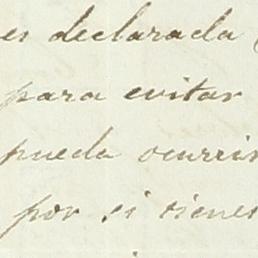 es declarada
para evitar
pueda ocurrir
por si tienes